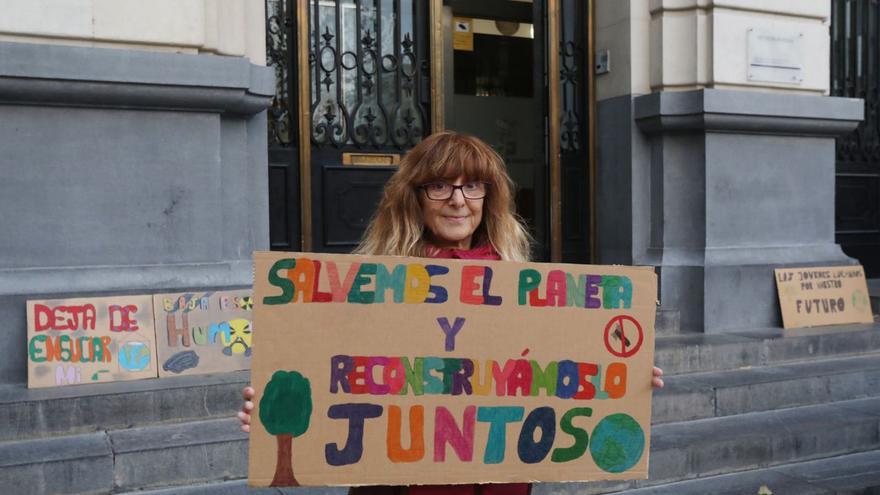 SALVEMOS EL PLANETA
Y
RECONSTRUYÁMOSLO
JUNTOS
DEJA DE
ENSUCIAR
Mi
BAJA
HUM
LAS JOVENES LUCHAMOS
POR NUESTRO
FUTURO